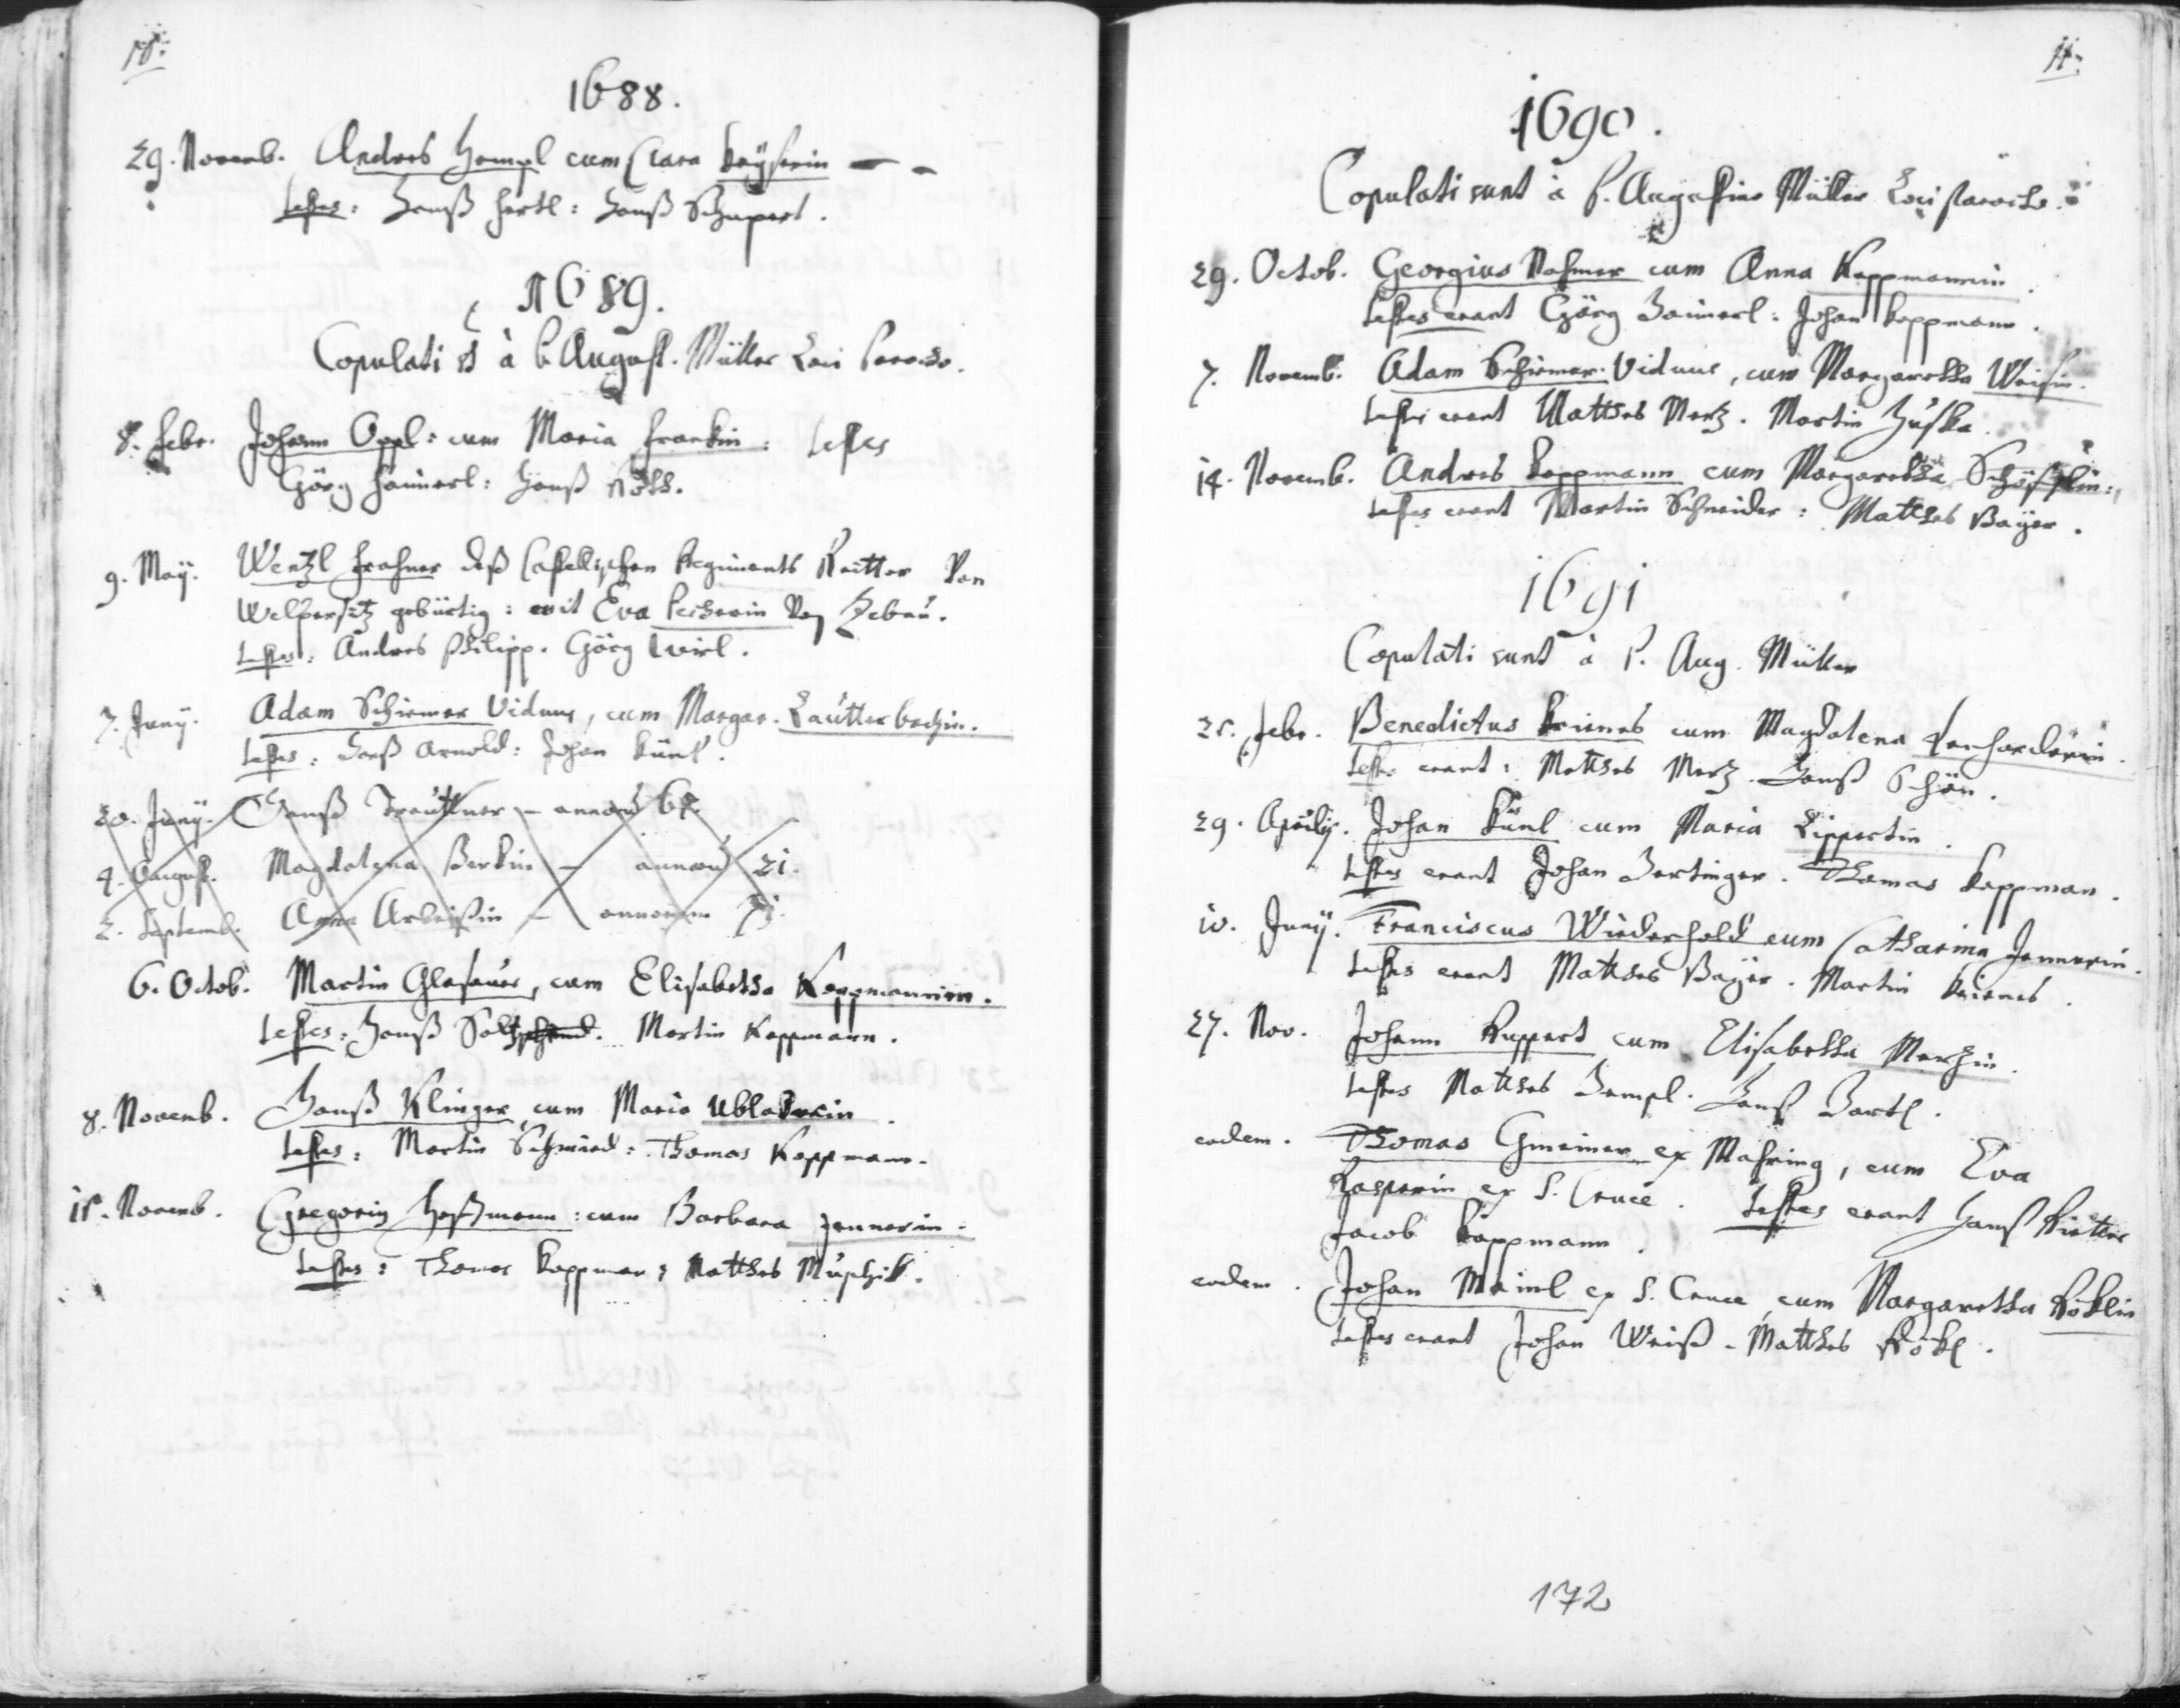 10.
1688.
29. Novemb. Andres Hempl cum Clara Keÿserin
testes: Hanß Hertl: Hanß Schupert.
1689.
Copulati st à P. August. Müller Loci Parocho.
8. Febr. Johann Oppl: cum Maria Frankin: testes
Görg Haimerl: Hanß
9. Maÿ. Wentzl Frahner deß Castellischen Regiments Reitter Von
Welpersitz gebürtig: mit Eva Pecherin Von
testes: Andres Philipp. Görg
7. Junÿ. Adam Schirmer Viduus, cum Margar. Lautterbachin.
testes: Hanß Arnold: Johan Künl.
20. Junÿ. Hanß Trautner – annorum
4. August. Magdalena Berkin – annorum 21.
2. Septemb. Anna – annorum
6. Octob. Martin Glasauer, cum Elisabetha Koppmannin.
testes: Hanß Martin Koppmann.
8. Novemb. Hanß Klinger cum Maria Ublackerin
testes: Martin Schmied: Thomas Koppmann.
15. Novemb. Gregorius Hoßmann: cum Barbara Jennerin.
testes: Thomas Koppman: Mathes
11.
1690.
Copulati sunt à P. Augustino Müller Loci Parocho.
29. Octob. Georgius Rahmer cum Anna Koppmannin.
testes erant Görg Haimerl: Johan Koppmann.
7. Novemb. Adam Schirmer Viduus, cum Margaretha Weisin.
testes erant Mathes Mertz. Martin
14. Novemb. Andres Koppmann cum Margaretha
testes erant Martin Schneider: Mathes Baÿer.
1691
Copulati sunt à P. Aug. Müller
25. Febr. Benedictus Krienes cum Magdalena
testes erant: Mathes Mertz. Hanß Schön.
29. Aprilis. Johan Künl cum Maria Lippertin.
testes erant Johan Hertinger. Thomas Koppman.
10. Junÿ. Franciscus Wiederhold cum Catharina Jennerin.
testes erant Mathes Baÿer. Martin Krienes.
27. Nov. Johann Ruppert cum Elisabetha Merzin.
testes Mathes Hempl. Hanß Hartl.
eodem. Thomas Gmeiner ex Mahring, cum Eva
Kasperin ex S. Cruce. Testes erant Hanß
Jacob Koppmann.
eodem. Johan Mainl ex S. Cruce cum Margaretha Röklin
testes erant Johan Weiß. Mathes Rökl.
172